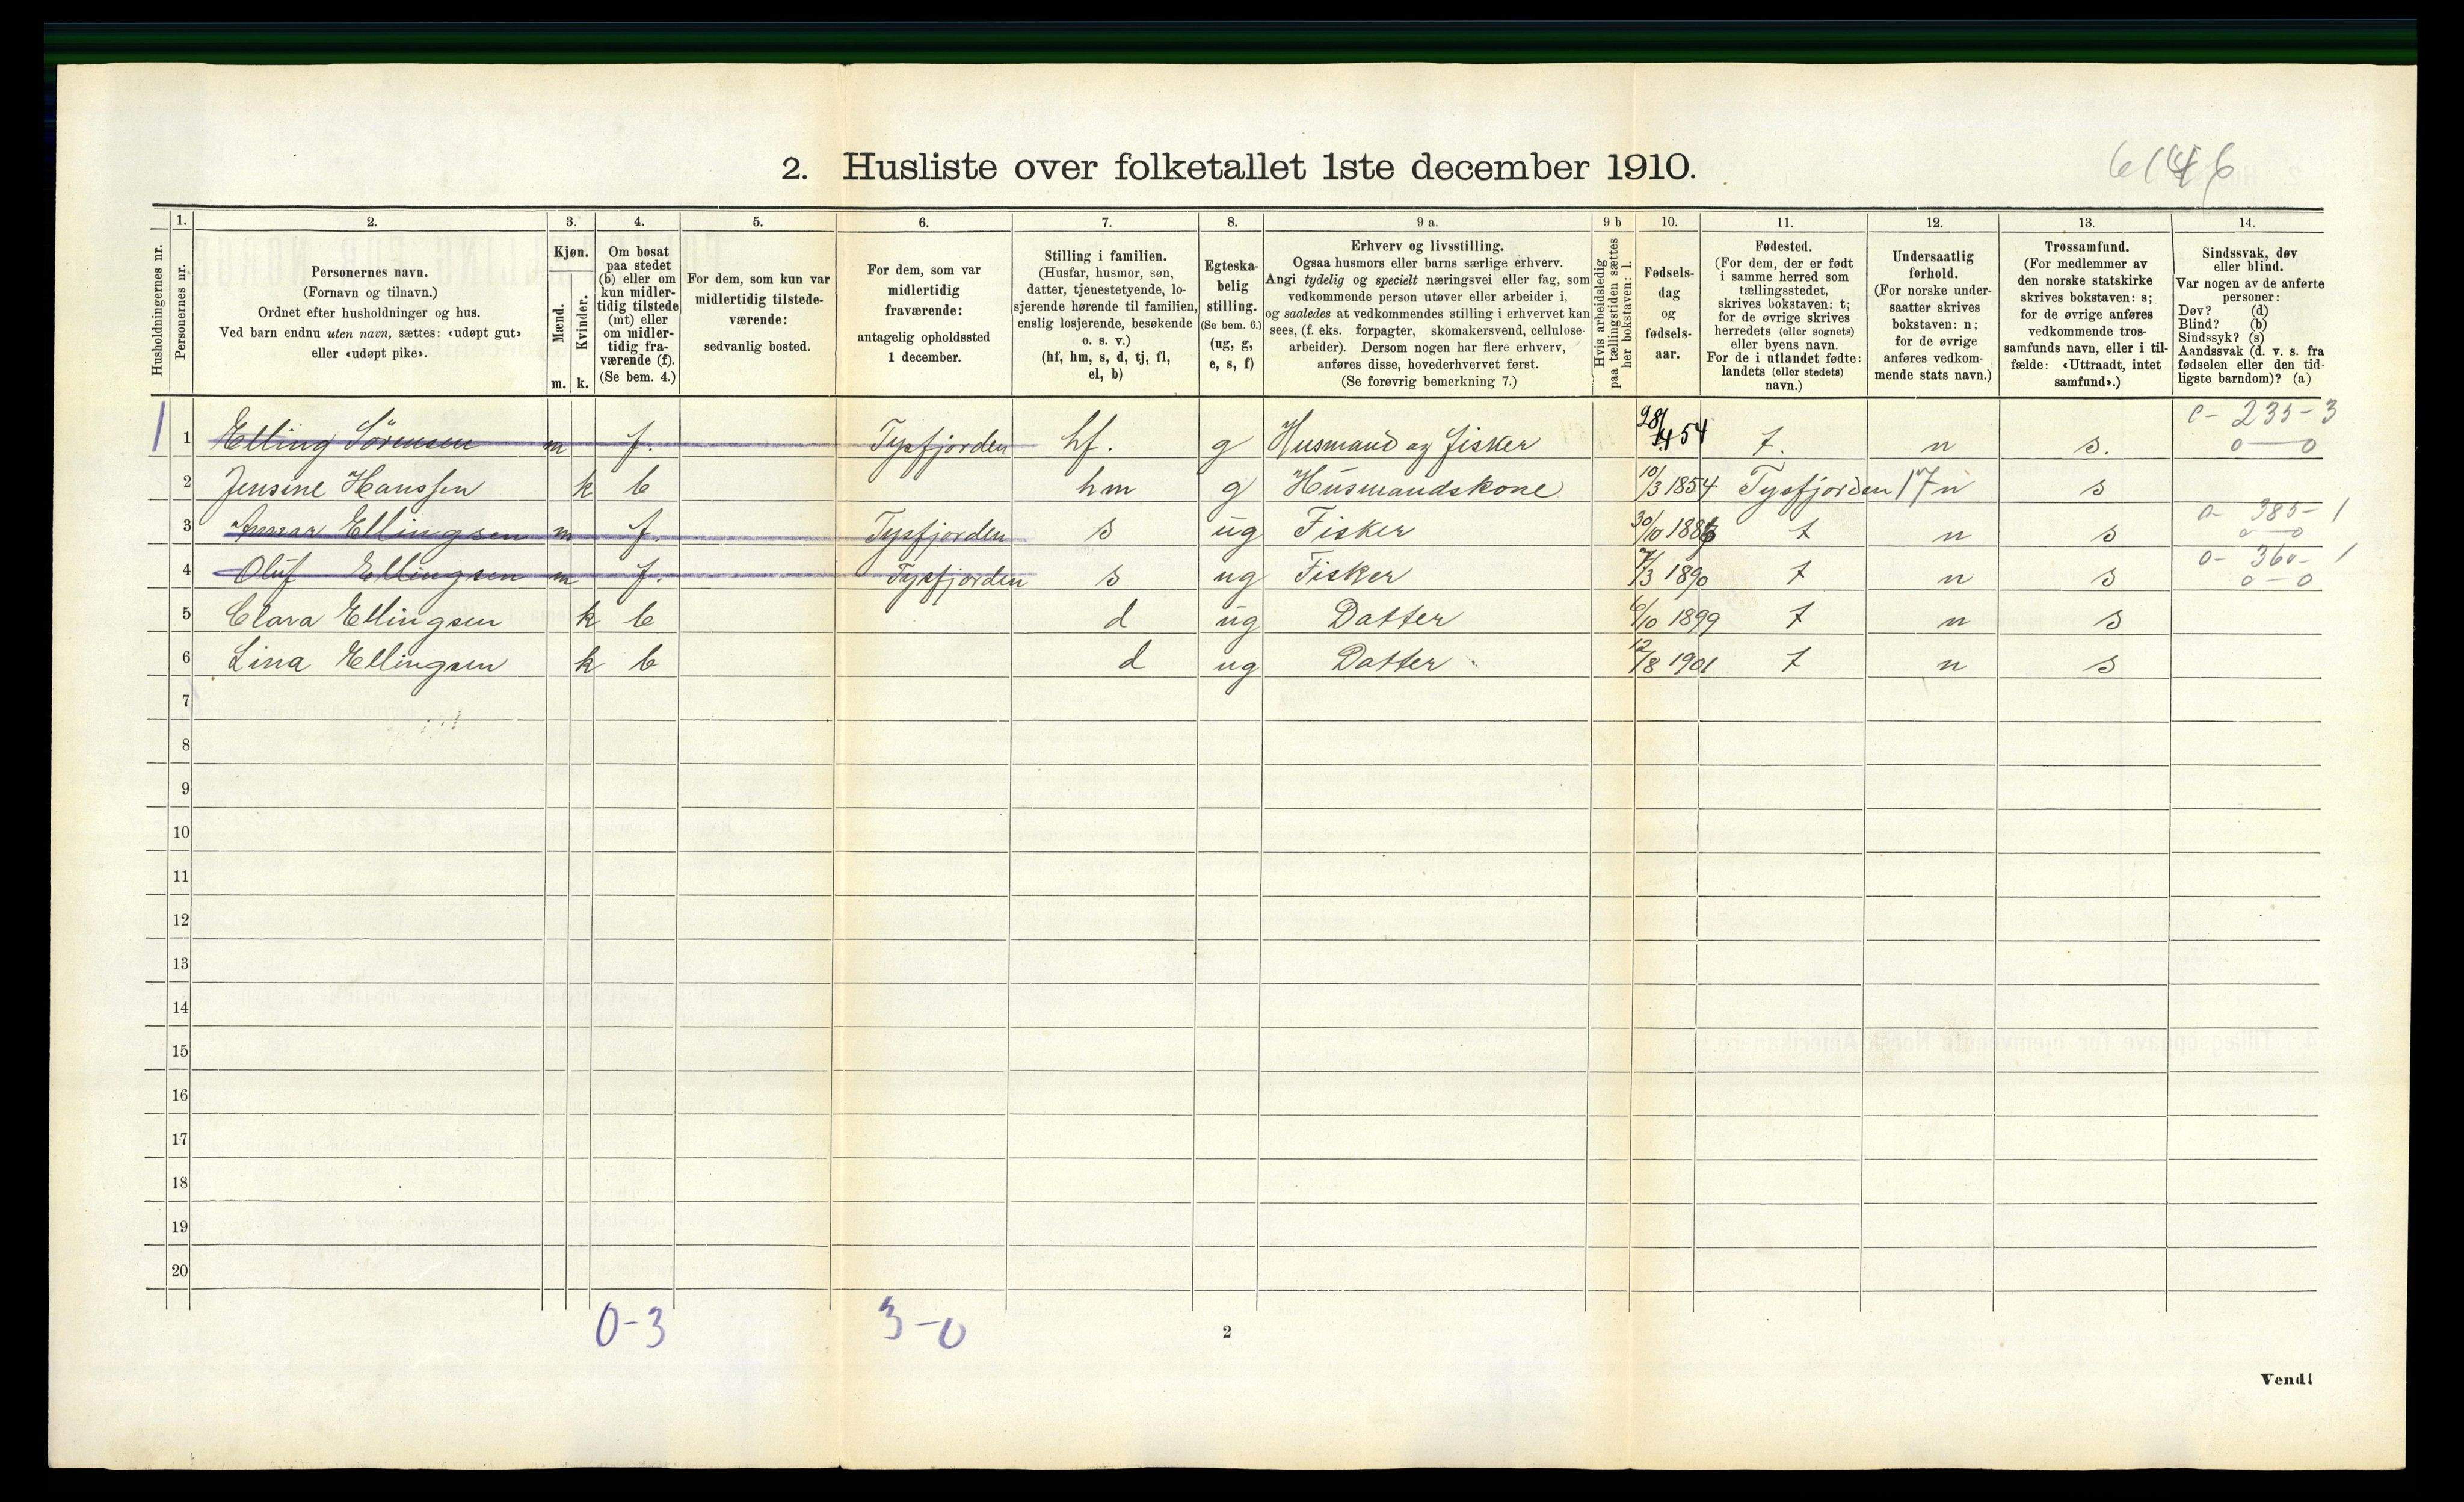 2. Husliste over folketallet 1ste december 1910.
Husholdningernes nr.
1. Personernes nr.
2. Personernes navn.
(Fornavn og tilnavn.)
Ordnet efter husholdninger og hus.
Ved barn endnu uten navn, sættes: «udøpt gut»
eller «udøpt pike».
3. Kjøn.
Mænd. m.
Kvinder. k.
4. Om bosat
paa stedet
(b) eller om
kun midler-
tidig tilstede
(mt) eller
om midler-
tidig fra-
værende (f).
(Se bem. 4.)
5. For dem, som kun var
midlertidig tilstede-
værende:
sedvanlig bosted.
6. For dem, som var
midlertidig
fraværende:
antagelig opholdssted
1 december.
7. Stilling i familien.
(Husfar, husmor, søn,
datter, tjenestetyende, lo-
sjerende hørende til familien,
enslig losjerende, besøkende
o. s. v.)
(hf, hm, s, d, tj, fl,
el, b)
8. Egteska-
belig
stilling.
(Se bem. 6.)
(ug, g,
e, s, f)
9 a. Erhverv og livsstilling.
Ogsaa husmors eller barns særlige erhverv.
Angi tydelig og specielt næringsvei eller fag, som
vedkommende person utøver eller arbeider i,
og saaledes at vedkommendes stilling i erhvervet kan
sees, (f. eks. forpagter, skomakersvend, cellulose-
arbeider). Dersom nogen har flere erhverv,
anføres disse, hovederhvervet først.
(Se forøvrig bemerkning 7.)
9 b Hvis arbeidsledig
paa tællingstiden sættes
her bokstaven: l.
10. Fødsels-
dag
og
fødsels-
aar.
11. Fødested.
(For dem, der er født
i samme herred som
tællingsstedet,
skrives bokstaven: t;
for de øvrige skrives
herredets (eller sognets)
eller byens navn.
For de i utlandet fødte:
landets (eller stedets)
navn.)
12. Undersaatlig
forhold.
(For norske under-
saatter skrives
bokstaven: n;
for de øvrige
anføres vedkom-
mende stats navn.)
13. Trossamfund.
(For medlemmer av
den norske statskirke
skrives bokstaven: s;
for de øvrige anføres
vedkommende tros-
samfunds navn, eller i til-
fælde: «Uttraadt, intet
samfund».)
14. Sindssvak, døv
eller blind.
Var nogen av de anførte
personer:
Døv? (d)
Blind? (b)
Sindssyk? (s)
Aandssvak (d. v. s. fra
fødselen eller den tid-
ligste barndom)? (a)
1 1 Elling Sörensen m f. Tysfjorden hf. g Husmand og fisker 28/4 54 t. n s. 235-3 0—0
2 Jensine Hanssen k b hm g Husmandskone 10/3 1854 Tysfjorden 17 n s
3 Ellingsen m f. Tysfjorden s ug Fisker 30/10 t n s 0- 385-1 0—0
4 Oluf Ellingsen m f. Tysfjorden s ug Fisker 7/3 1890 t n s 0- 360-1 0-0
5 Clara Ellingsen k b d ug Datter 6/10 1899 t n s
6 Lina Ellingsen k b d ug Datter 12/8 1901 t n s
7
8
9
10
11
12
13
14
15
16
17
18
19
20
0-3 3-0
2
Vend!